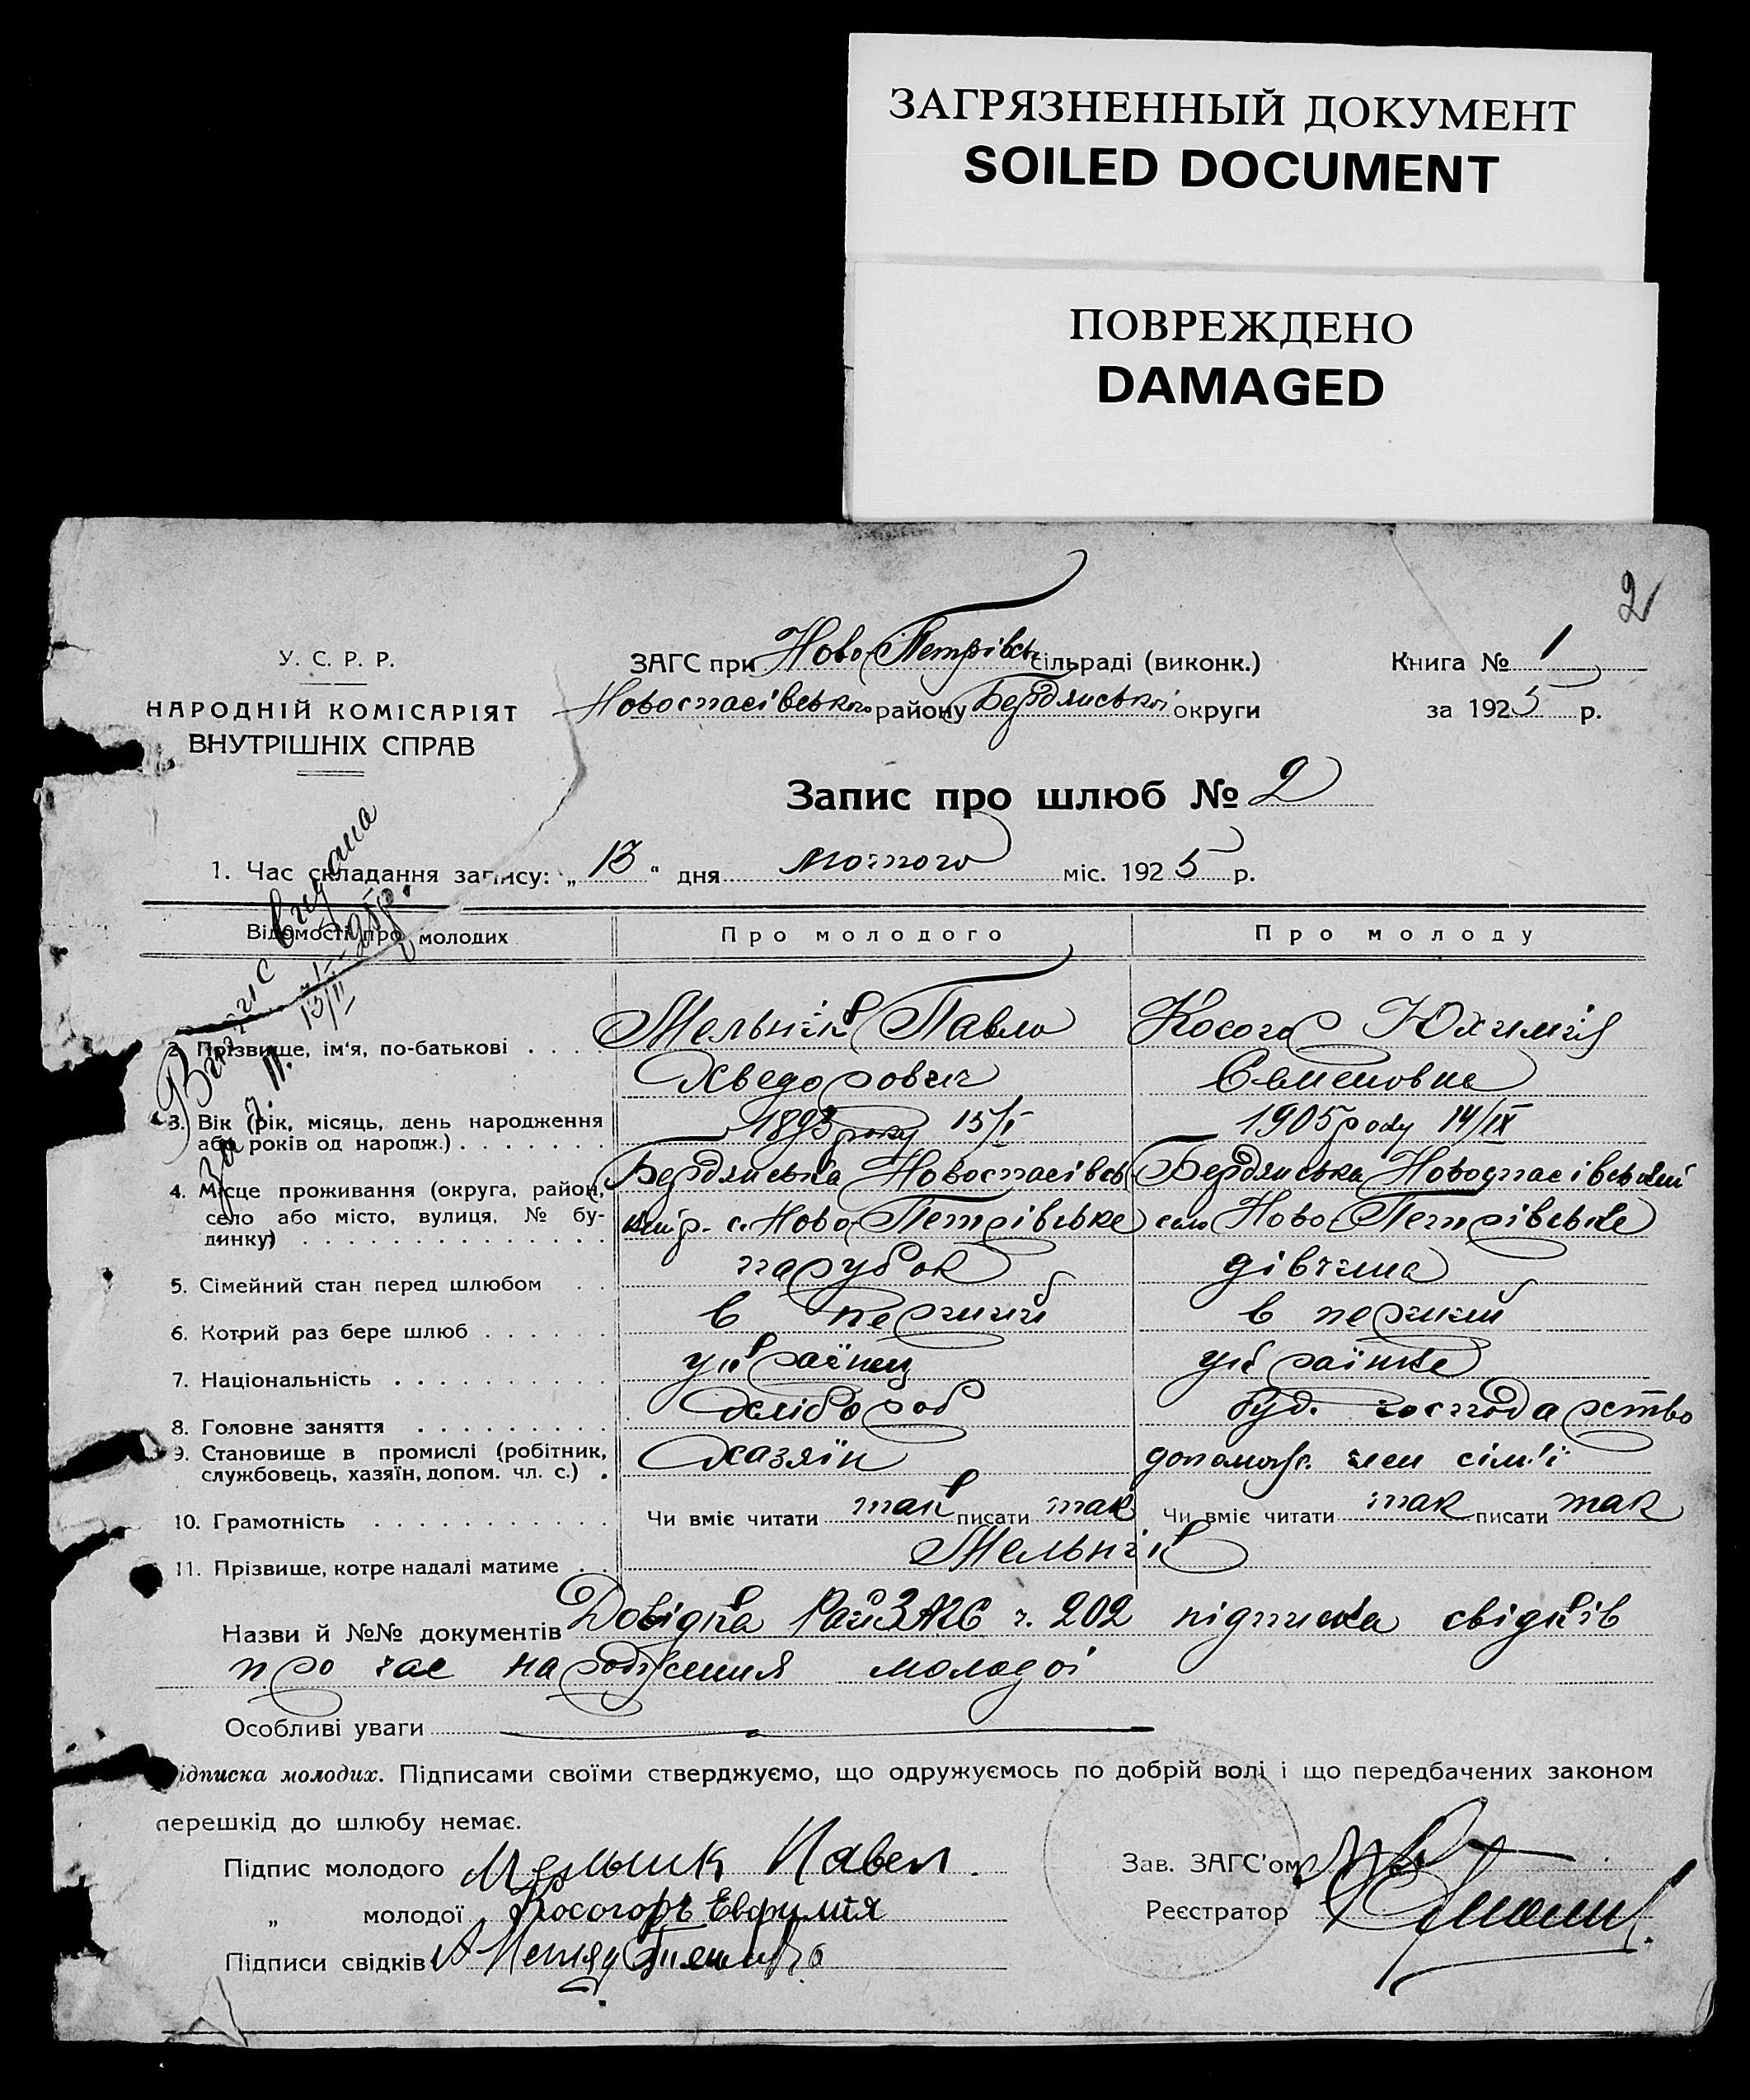 ЗАГРЯЗНЕННЫЙ ДОКУМЕНТ
SOILED DOCUMENT
ПОВРЕЖДЕНО
DAMAGED
2
У. С. Р. Р.
НАРОДНІЙ КОМІСАРІЯТ
ВНУТРІШНІХ СПРАВ
ЗАГС при Ново-Петрівсь сільраді (виконк.)
Новоспасівського району Бердянської округи
Книга № 1
за 1925 р.
Запис про шлюб № 2
1. Час складання запису: „13“ дня лютого міс. 1925 р.
Випис видана
13/II 25р.
за ч. 11.
Відомості про молодих
Про молодого
Про молоду
2. Прізвище, ім'я, по-батькові
Мельнік Павло
Хведорович
Косогор Юхимія
Семеновна
3. Вік (рік, місяць, день народження
або років од нарощж.)
1893 року 15/I
1905 року 14/IX
4. Місце проживання (округа, район,
село або місто, вулиця, № бу-
динку)
Бердянська Новоспасівсь
с. Ново-Петрівське
Бердянська Новоспасівський
село Ново-Петрівське
5. Сімейний стан перед шлюбом
парубок
дівчина
6. Котрий раз бере шлюб
в перший
в перший
7. Національність
українец
українка
8. Головне заняття
хлібороб
буд. господарство
9. Становище в промислі (робітник,
службовець, хазяїн, допом. чл. с.)
хазяїн
допомог. член сім'ї
10. Грамотність
Чи вміє читати так писати так
Чи вміє читати так писати так
11. Прізвище, котре надалі матиме
Мельнік
Назви й №№ документів Довідка РайЗАГС ч. 202 підписка свідків
про час народження молодої
Особливі уваги
ідписка молодих. Підписами своїми стверджуємо, що одружуємось по добрій волі і що передбачених законом
перешкід до шлюбу немає.
Підпис молодого Мельник Павел.
„ молодої Косогоръ Евфимія
Підписи свідків
Зав. ЗАГС'ом
Реєстратор